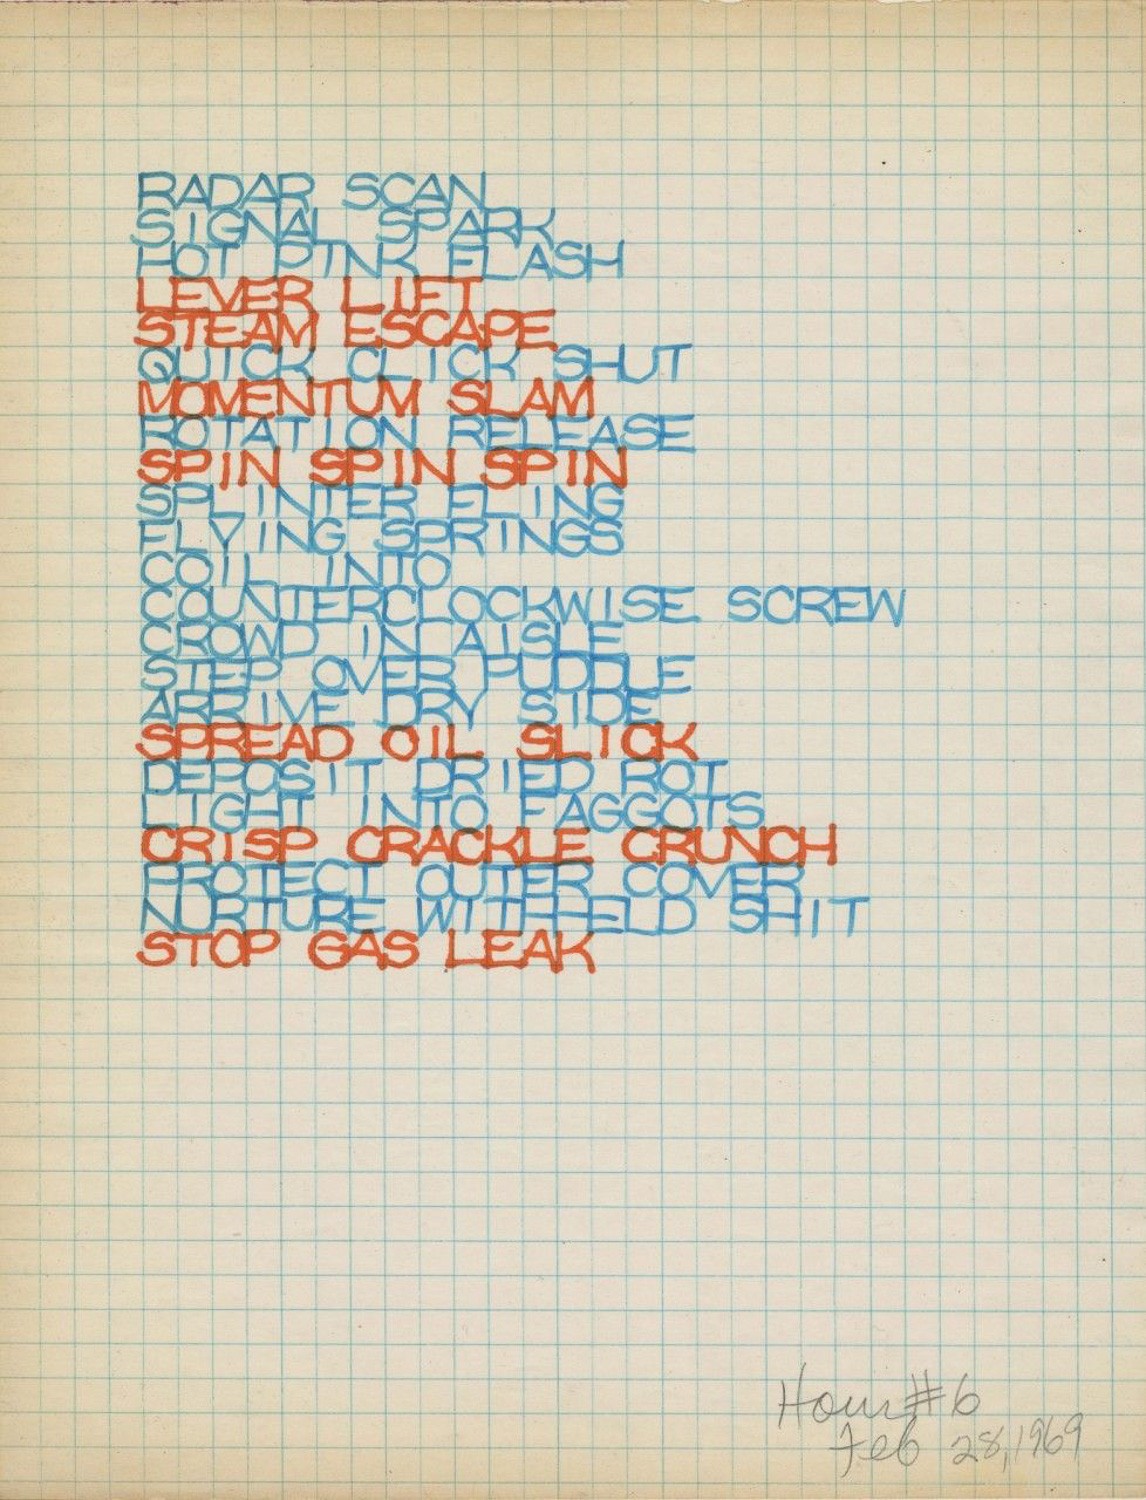 RADAR SCAN
SIGNAL SPARK
HOT PINK FLASH
LEVER LIFT
STEAM ESCAPE
QUICK CLICK SHUT
MOMENTUM SLAM
ROTATION RELEASE
SPIN SPIN SPIN
SPLINTER FLING
FLYING SPRINGS
COIL INTO
COUNTERCLOCKWISE SCREW
CROWD IN AISLE
STEP OVER PUDDLE
ARRIVE DRY SIDE
SPREAD OIL SLICK
DEPOSIT DRIED ROT
LIGHT INTO FAGGOTS
CRISP CRACKLE CRUNCH
PROTECT OUTER COVER
NURTURE WITHHELD SHIT
STOP GAS LEAK
Hour #6
Feb 28, 1969